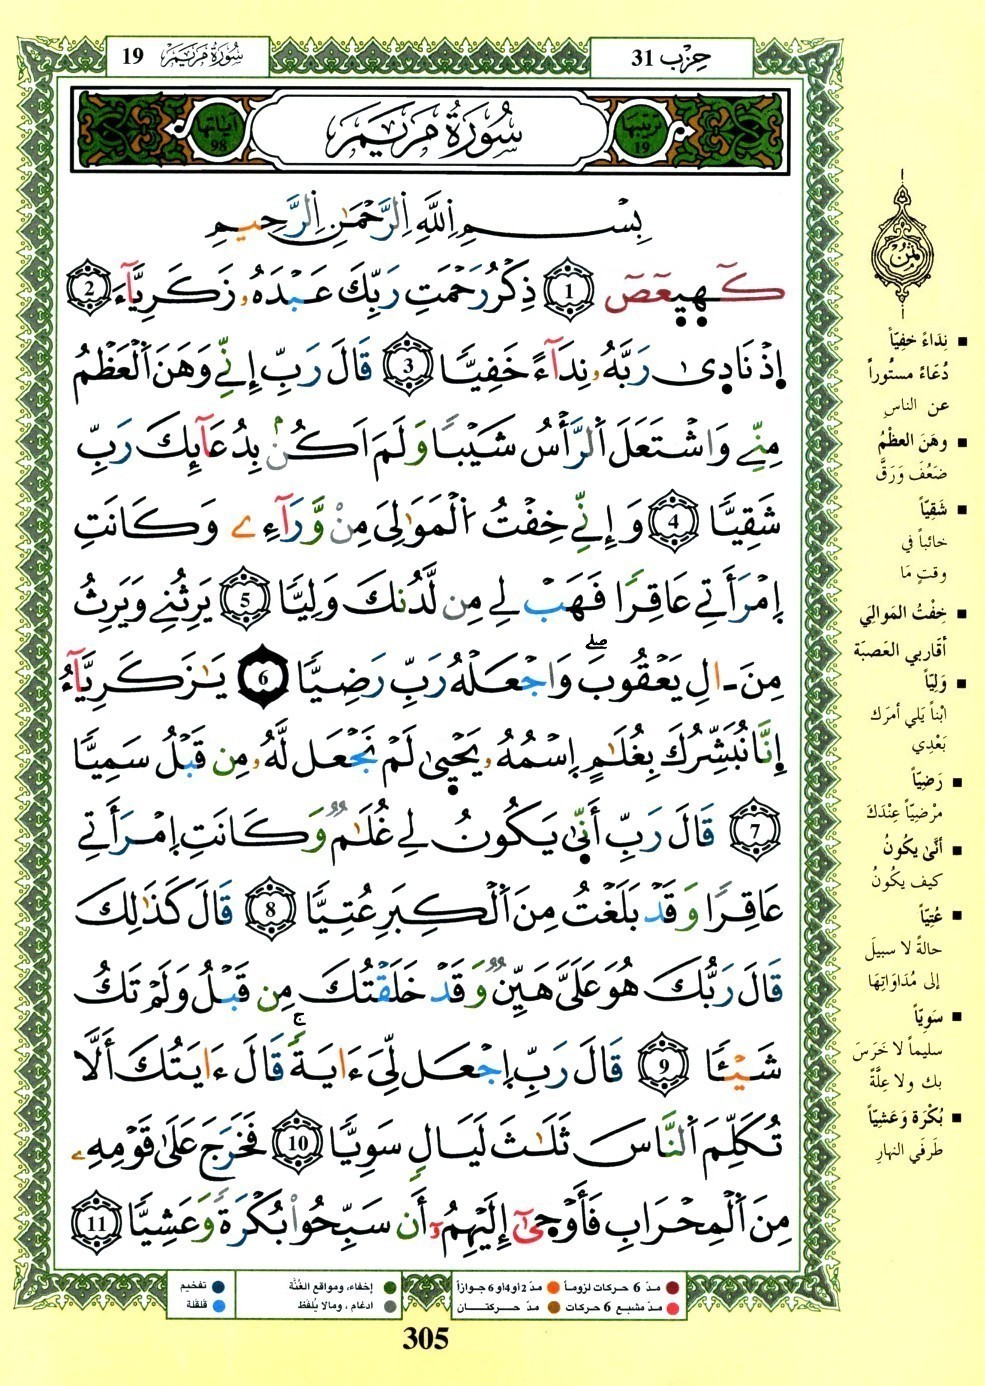 حِزْب 31
سُورَةُ مَرْيَمَ 19
ترتيبها 19
سُورَةُ مَرْيَمَ
آياتها 98
بِسْمِ اِ۬للَّهِ اِ۬لرَّحْمَٰنِ اِ۬لرَّحِيمِ
كٓهيعٓصٓ 1 ذِكْرُ رَحْمَتِ رَبِّكَ عَبْدَهُۥ زَكَرِيَّآءَ 2
إِذْ نَادٜىٰ رَبَّهُۥ نِدَآءً خَفِيّٗا 3 قَالَ رَبِّ إِنِّے وَهَنَ اَ۬لْعَظْمُ
مِنِّے وَاشْتَعَلَ اَ۬لرَّأْسُ شَيْباٗ وَلَمَ اَكُنۢ بِدُعَآئِكَ رَبِّ
شَقِيّٗا 4 وَإِنِّے خِفْتُ اُ۬لْمَوَٰلِىَ مِنْ وَّرَآءِے وَكَانَتِ
اِمْرَأَتِے عَاقِراٗ فَهَبْ لِے مِن لَّدُنكَ وَلِيّٗا 5 يَرِثُنِے وَيَرِثُ
مِنَ اٰلِ يَعْقُوبَۖ وَاجْعَلْهُ رَبِّ رَضِيّٗا 6 يَٰزَكَرِيَّآءُ
اِ۪نَّا نُبَشِّرُكَ بِغُلَٰمٍ اِ۪سْمُهُۥ يَحْيٜىٰ لَمْ نَجْعَل لَّهُۥ مِن قَبْلُ سَمِيّٗا
7 قَالَ رَبِّ أَنّٜىٰ يَكُونُ لِے غُلَٰمٞ وَكَانَتِ اِ۪مْرَأَتِے
عَاقِراٗ وَقَدْ بَلَغْتُ مِنَ اَ۬لْكِبَرِ عُتِيّٗا 8 قَالَ كَذَٰلِكَ
قَالَ رَبُّكَ هُوَ عَلَيَّ هَيِّنٞ وَقَدْ خَلَقْتُكَ مِن قَبْلُ وَلَمْ تَكُ
شَيْـٔاٗ 9 قَالَ رَبِّ اِ۪جْعَل لِّىَ ءَايَةٗۚ قَالَ ءَايَتُكَ أَلَّا
تُكَلِّمَ اَ۬لنَّاسَ ثَلَٰثَ لَيَالٖ سَوِيّٗا 10 فَخَرَجَ عَلَىٰ قَوْمِهِۦ
مِنَ اَ۬لْمِحْرَابِ فَأَوْحٜىٰٓ إِلَيْهِمُۥٓ أَن سَبِّحُواْ بُكْرَةٗ وَعَشِيّٗا 11
■ نِدَاءً خفِيّاً
دُعَاءً مستُوراً
عن الناسِ
■ وهَنَ العظْمُ
ضَعُفَ وَرَقَّ
■ شَقِيّاً
خائباً في
وقتٍ مَا
■ خِفْتُ المَوالِي
أقَاربي العَصبَة
■ وَلِيّاً
ابْناً يَلي أمرَك
بَعْدِي
■ رَضِيّاً
مرْضيّاً عِنْدَكَ
■ أنَّىٰ يكُونُ
كيف يكُونُ
■ عُتِيّاً
حالةً لا سبيلَ
إلى مُدَاوَاتِهَا
■ سَوِيّاً
سليماً لا خَرَسَ
بك ولا عِلَّةً
■ بُكْرَة وَعَشِيّاً
طَرفَي النهارِ
مدّ 6 حركات لزوماً مدّ 2 أو 4 أو 6 جوازاً
مدّ مشبع 6 حركات مدّ حركتان
إخفاء، ومواقع الغُنَّة
ادغام، ومالا يُلفظ
تفخيم
قلقلة
305